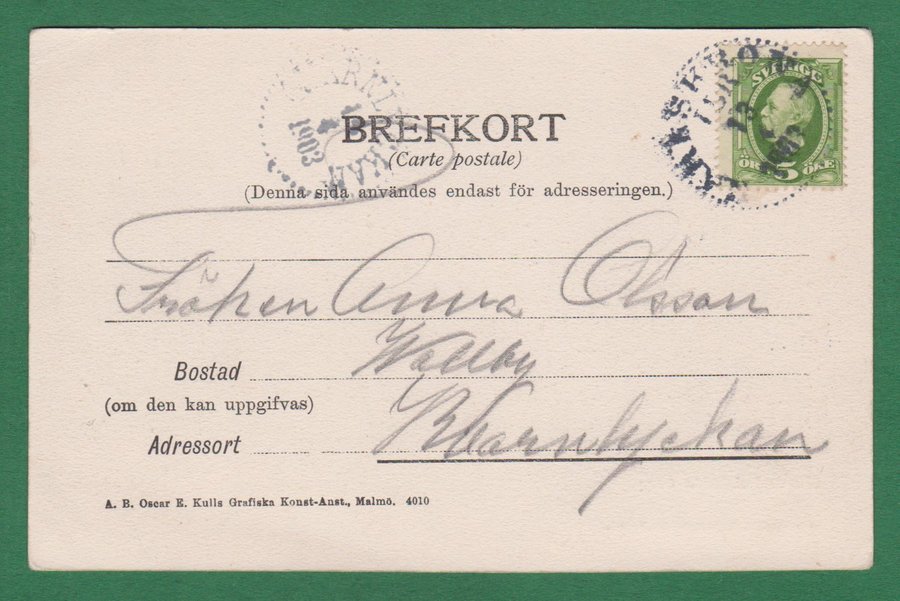 BREFKORT
(Carte postale)
(Denna sida användes endast för adresseringen.)
1903
SVERIGE
5
ÖRE
Fröken Anna Olsson
Wallby
Bostad
(om den kan uppgifvas)
Adressort
Qvarnlyckan
A. B. Oscar E. Kulls Grafiska Konst-Anst., Malmö. 4010